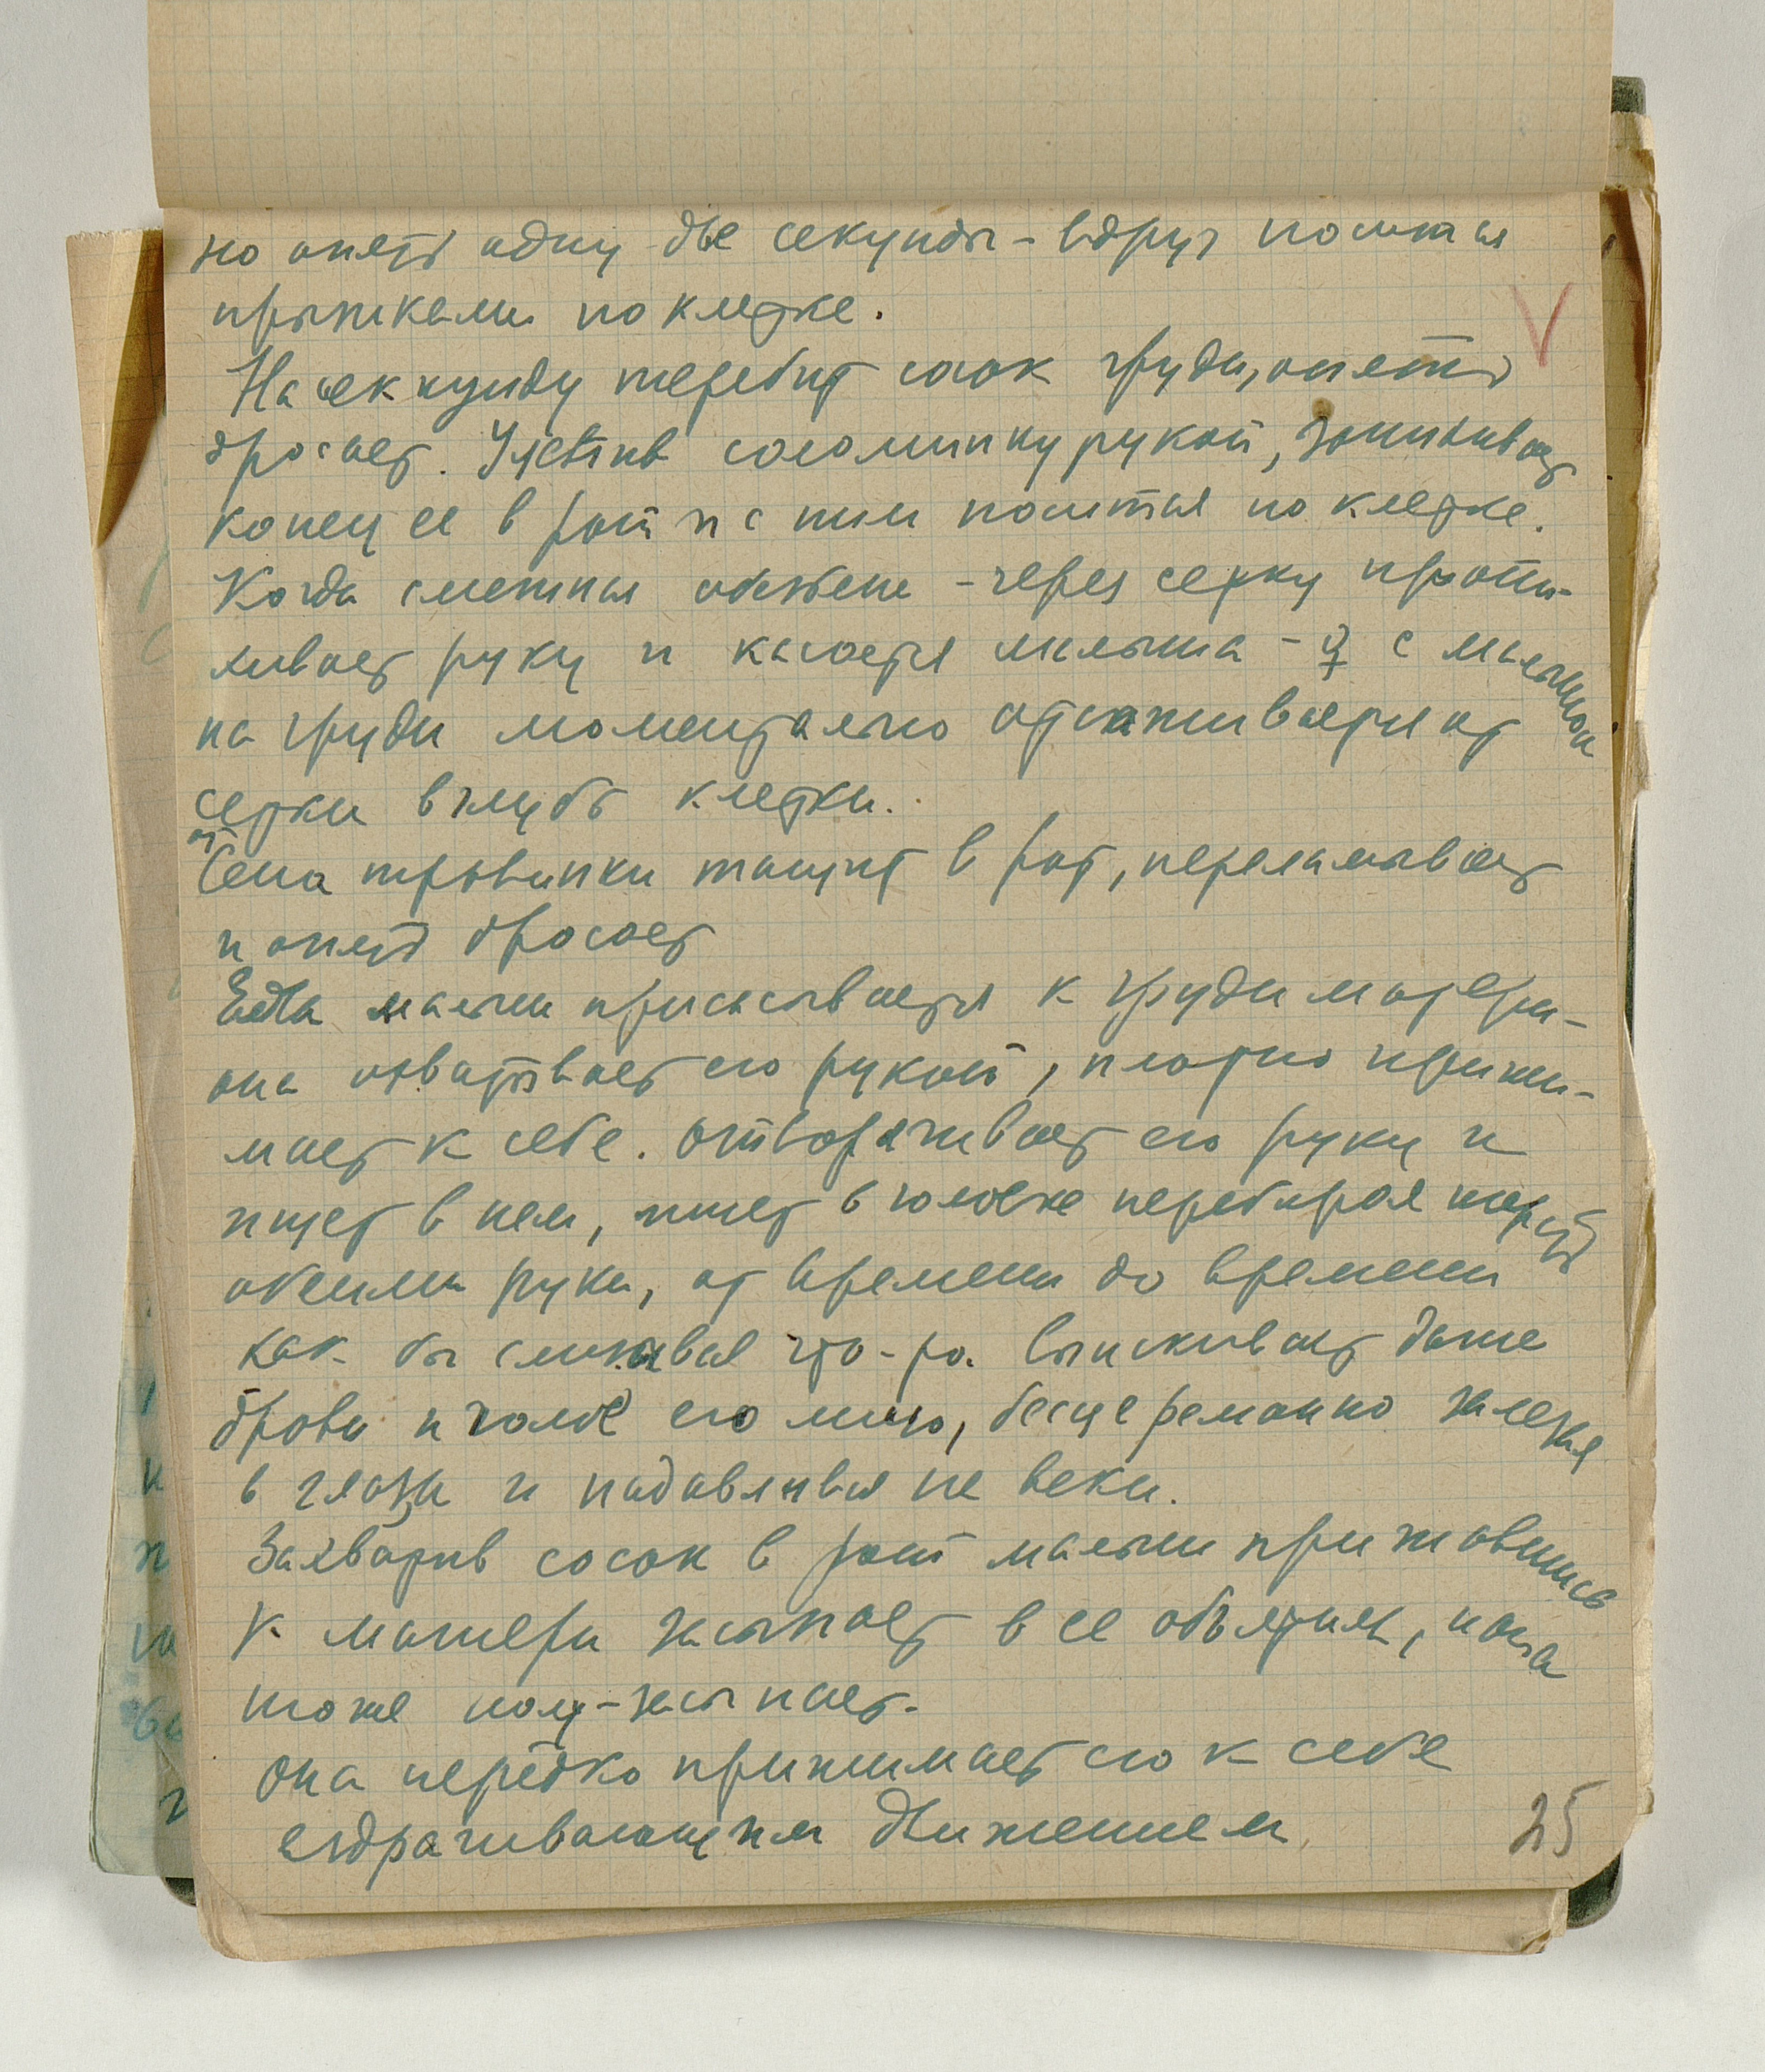 но опять одну две секунды - вдруг носится
прыжками по клетке.
На секкунду теребит сосок груди, опять
бросает. Ухватив соломинку рукой, запихивает
конец ее в рот и с ним носится по клетке.
Когда смежная обезьяна - через сетку протал-
кивает руку и касается малыша - ♀ с малышом
на груди моментально отскакивает от
сетки вглубь клетки.
от Сена травинки тащит в рот, переламывает
и опять бросает
Едва малыш присасывается к груди матери -
она охватывает его рукой, плотно прижи-
мает к себе. Отворачивает его руку и
ищет в нем, ищет в головке перебирая шерсть
обеими руки, от времени до времени
как бы слизывая что-то. Выискивает даже
брови и голое его лицо, бесцеремонно залезая
в глаза и надавливая на веки.
Захватив сосок в рот малыш прижавшись
к матери засыпает в ее объятиях, и она
тоже полу-засыпает.
Она нередко прижимает его к себе
вздрагивающим движением
25